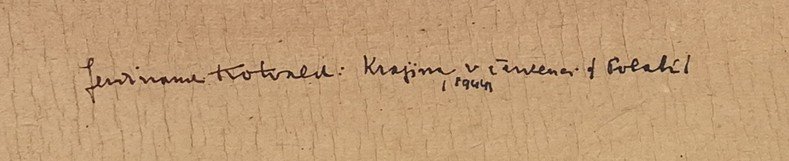 Ferdinand Kotvald: Krajina v červenci / Polabí /
/ 1944 /